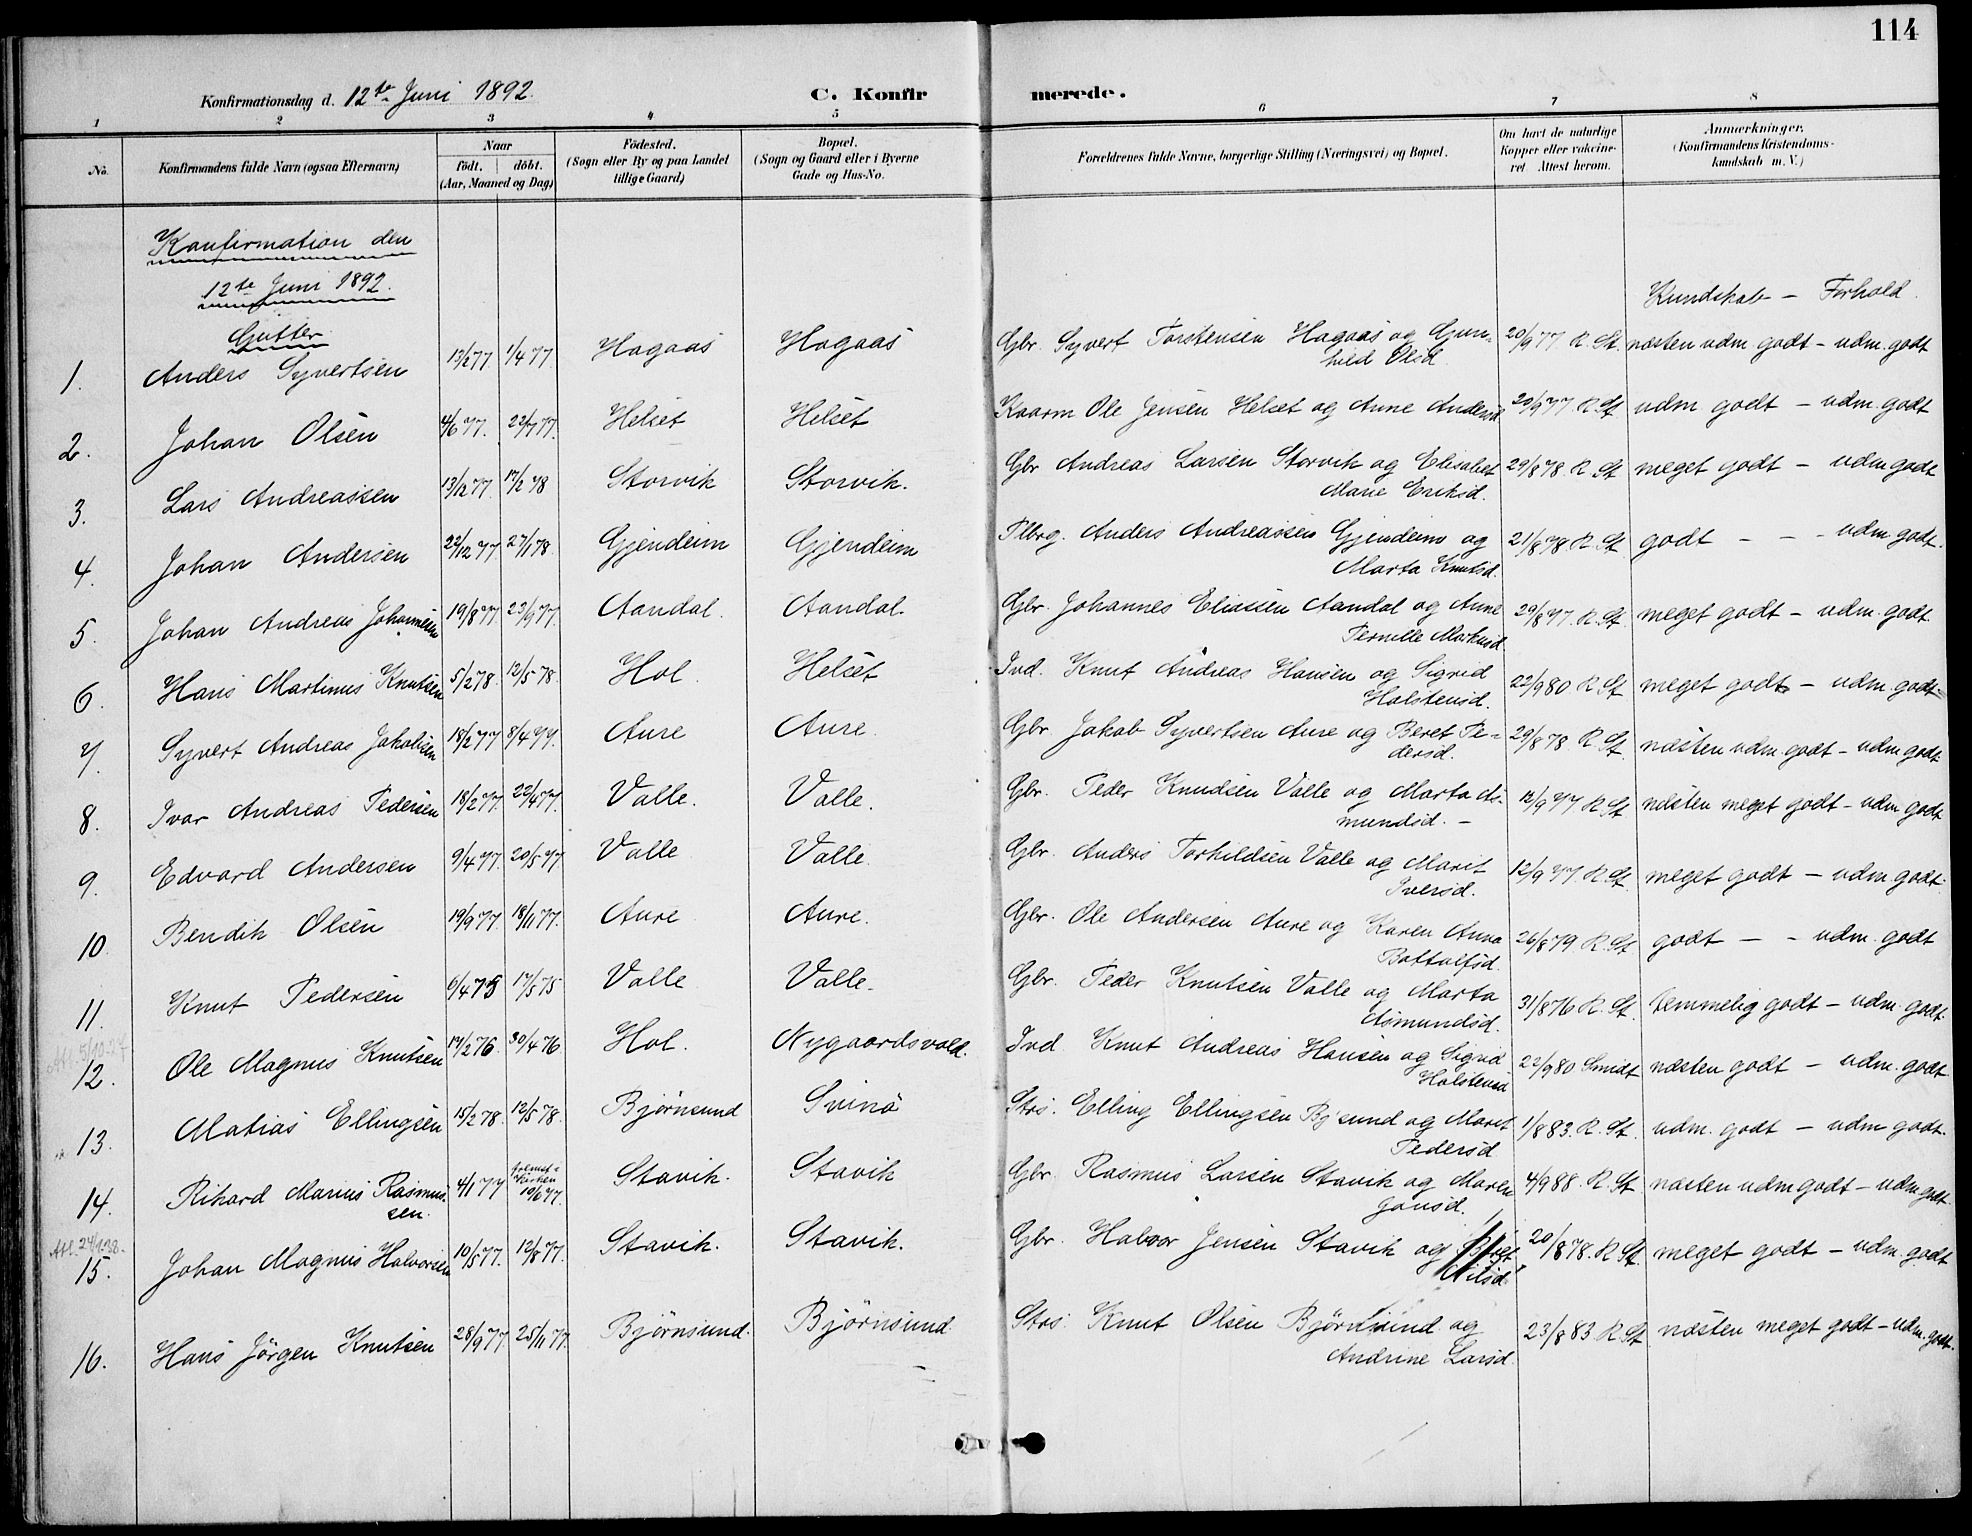 114
Konfirmationsdag d. 12te Juni 1892. C. Konfirmerede.
1 2 3 4 5 6 7 8
No. Konfirmandens fulde Navn (ogsaa Efternavn) Naar født. døbt. (Aar, Maaned og Dag) Fødested. (Sogn eller By og paa Landet tillige Gaard) Bopæl. (Sogn og Gaard eller i Byerne Gade og Hus-No. Forældrenes fulde Navne, borgerlige Stilling (Næringsvei) og Bopæl. Om havt de naturlige Kopper eller vakcineret. Attest herom. Anmærkninger. (Konfirmandens Kristendomskundskab m. V.)
Konfirmation den
12te Juni 1892.
Gutter
Kundskab - Forhold.
1. Anders Syvertsen 1/4 77 Hagaas Hagaas Gbr. Syvert Torstensen Hagaas og Gunhild Olsd. 20/9 77 R. St. næsten udm. godt - udm. godt
2. Johan Olsen 4/6 77. 22/7 77. Helset Helset Kaarm Ole Jensen Helset og Anne Andersd 20/9 77 R St udm godt - udm. godt
3. Lars Andreassen 13/12 77. 17/2 78 Storvik Storvik. Gbr Andreas Larsen Storvik og Elisabet Marie Eriksd. 29/8 78. R. St meget godt - udm. godt
4. Johan Andersen 22/12 77. 27/1 78. Gjendeim Gjendeim Plbrg. Anders Andreassen Gjendeim og Marta Knutsd. 21/8 78 R. St godt - - - udm. godt.
5. Johan Andreas Johannesen 19/8 77. 23/9 77. Aandal. Aandal. Gbr. Johannes Eliassen Aandal og Anne Pernille Markusd. 29/8 77. R. St. meget godt - udm. godt.
6. Hans Martinus Knutsen 5/2 78. 12/5 78. Hol. Helset Ind. Knut Andreas Hansen og Sigrid Holstensd. 22/9 80. R St meget godt - udm. godt.
7. Syvert Andreas Jakobsen 18/2 77 8/4 77. Aure Aure. Gbr. Jakob Syvertsen Aure og Beret Pedersd. 29/8 78. R. St. næsten udm. godt - udm godt
8. Ivar Andreas Pedersen 18/2 77. 22/4 77. Valle. Valle. Gbr. Peder Knudsen Valle og Marta Asmundsd. - 12/9 77. R St næsten meget godt - udm godt
9. Edvard Andersen 9/4 77. 20/5 77. Valle Valle. Gbr. Anders Torhildsen Valle og Marit Iversd. 12/9 77. R. St. meget godt - udm godt.
10. Bendik Olsen 19/9 77. 18/11 77. Aure Aure. Gbr. Ole Andersen Aure og Karen Anna Bottolfsd. 26/8 79. R. St godt - - udm. godt
11. Knut Pedersen 6/4 75 17/5 75 Valle Valle. Gbr. Peder Knutsen Valle og Marta Asmundsd. 31/8 76 R. St. temmelig godt - udm. godt.
12. Ole Magnus Knutsen 30/4 76. Hol. Nygaardsvald. Ind Knut Andreas Hansen og Sigrid Holstensd 22/9 80 Smidt næsten godt - udm. godt.
13. Matias Ellingsen 15/2 78. 12/5 78. Bjørnsund Svinø Stns. Elling Ellingsen Bj'sund og Maret Pedersd 1/8 83. R. St. udm. godt - udm godt.
14. Rikard Marius Rasmussen. 4/1 77 Stavik. Stavik Gbr. Rasmus Larsen Stavik og Maren Jonsd. 4/9 88. R. St. næsten udm godt - udm. godt.
Att. 15. Johan Magnus Halvorsen 10/5 77. 12/8 77. Stavik. Stavik. Gbr. Halvor Jensen Stavik og Beret Nilsd. 20/8 78. R St. meget godt - udm. godt
16. Hans Jörgen Knutsen 28/9 77. 25/11 77. Bjørnsund. Bjørnsund. Knut Olsen Bjørnsund og Andrine Larsd. 23/8 83 R. St. næsten meget godt - udm. godt.